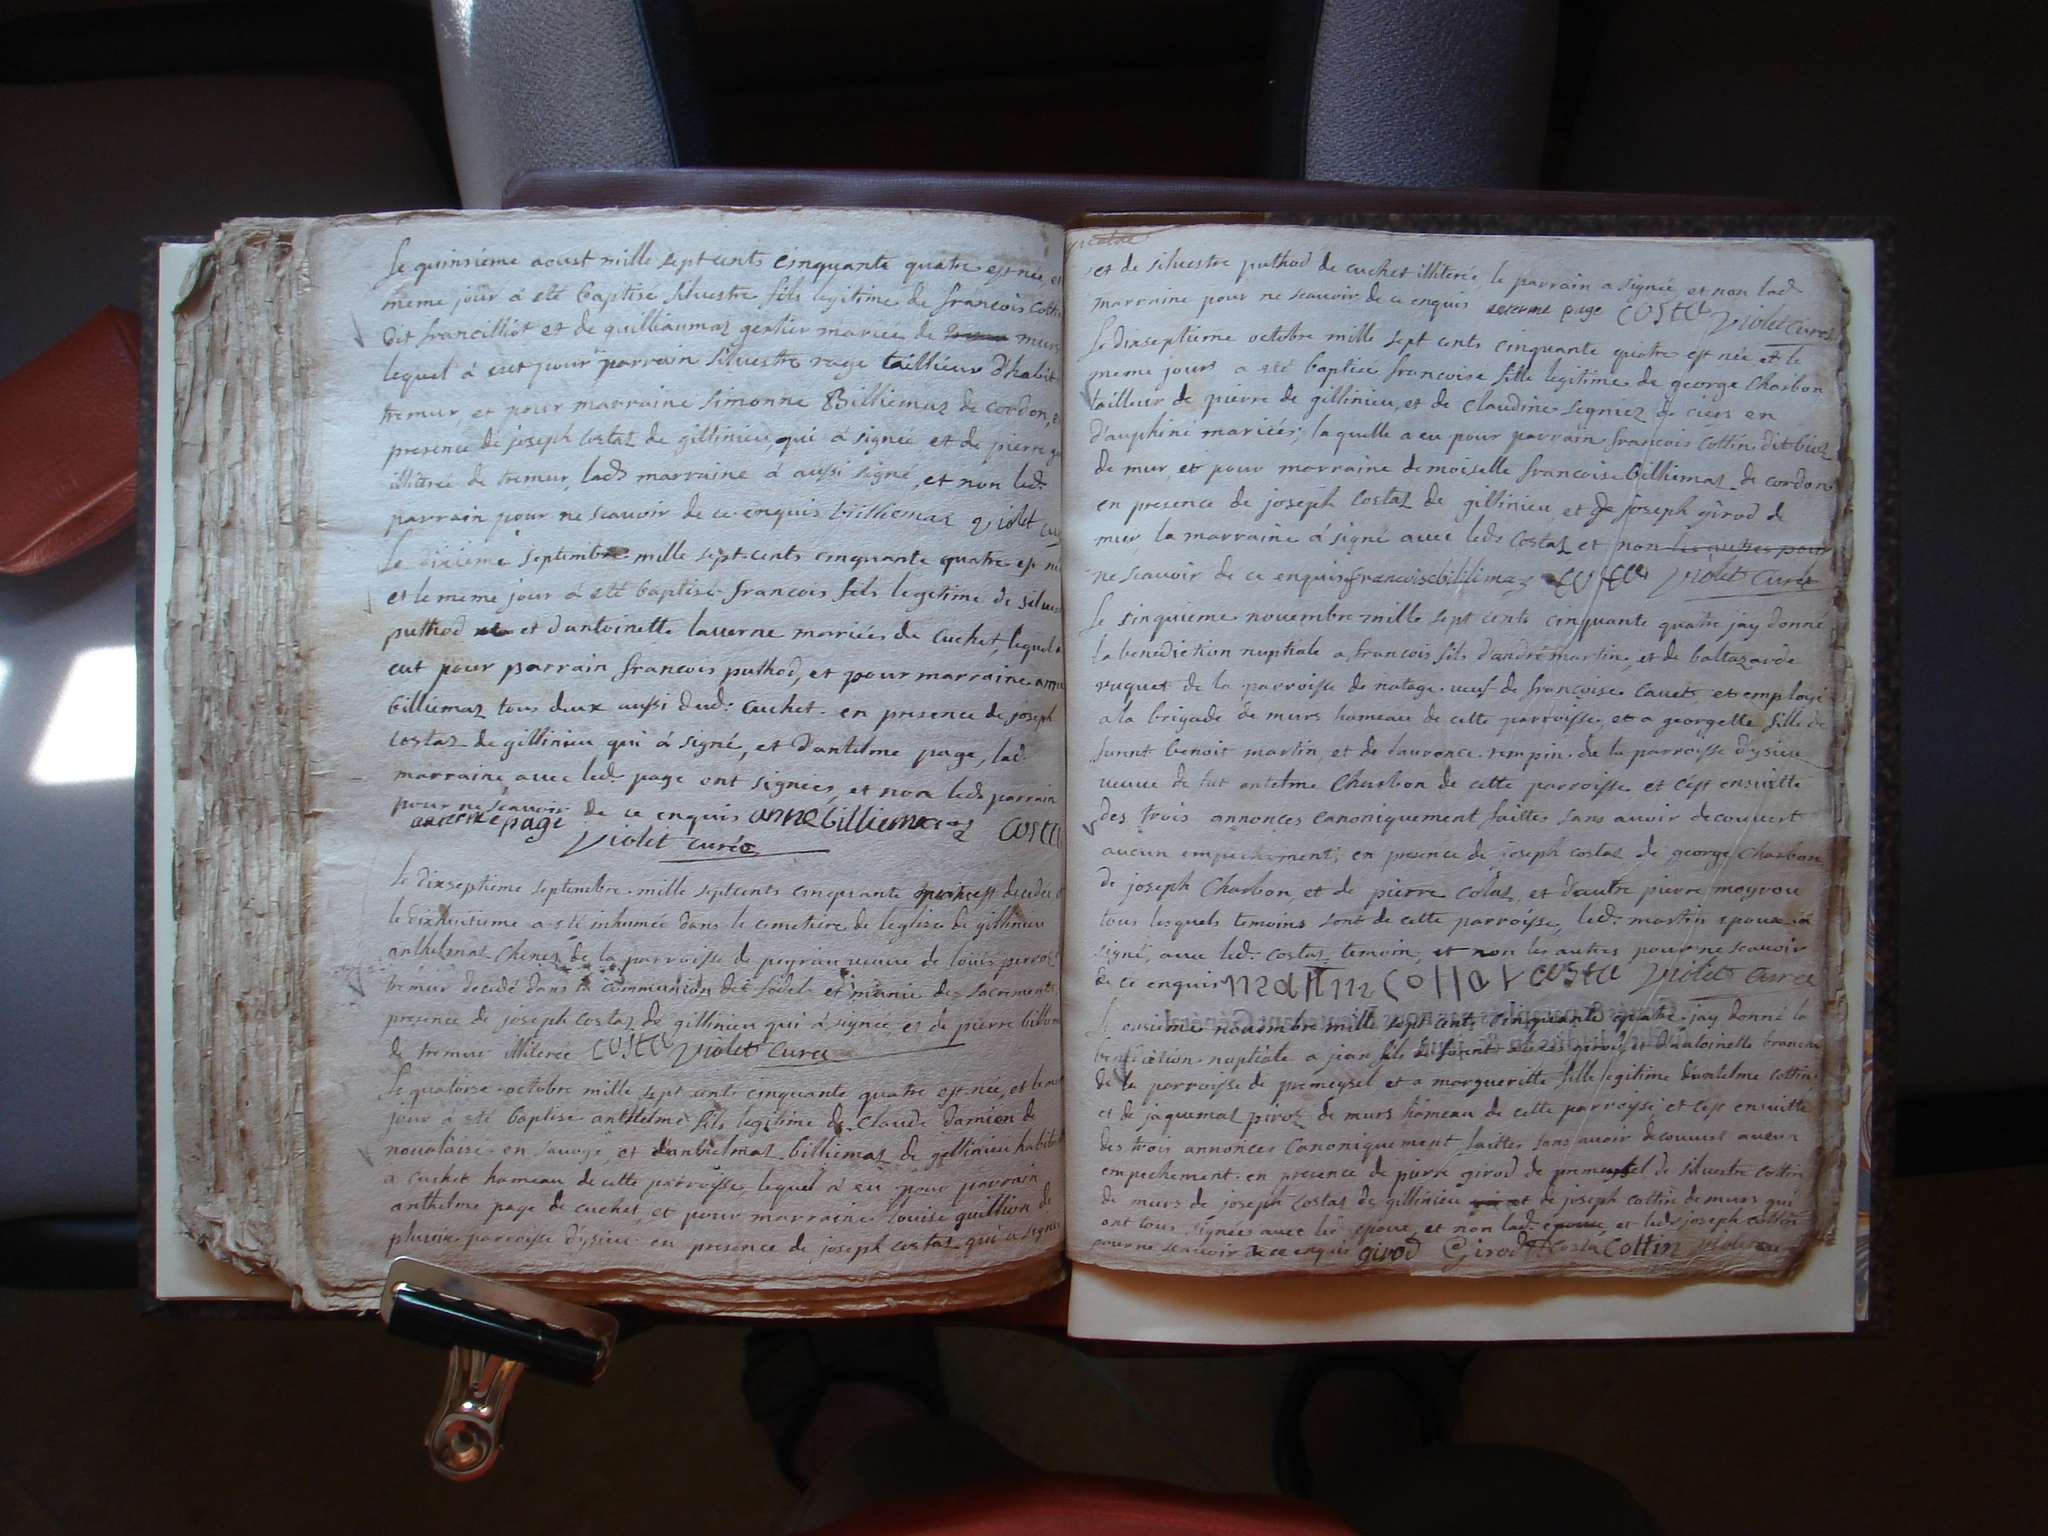 Le quinsieme aoust mille sept cents cinquante quatre est née, et
meme jour à eté baptisé silvestre fils legitime de francois cotti
dit francilliot et de guilliaumaz gerlier mariés de murs
lequel à eut pour parrain silvestre rage taillieur d'habit
tremur, et pour marraine simonne Billiemaz de cordon, e
presence de joseph costaz de gillinieu, qui à signée et de pierre
illiterée de tremur, lad marraine à aussi signé, et non led
parrain pour ne scavoir de ce enquis billiemaz violet cu
Le dixieme septembre mille sept cents cinquante quatre est né
et le meme jour à eté baptisé francois fils legitime de silves
puthod et d'antoinette laverne mariés de cuchet, lequel a
eut pour parrain francois puthod, et pour marraine anne
billiemaz tous deux aussi dud: cuchet. en presence de joseph
costaz de gillinieu qui à signé, et d'antelme page, lad
marraine avec led page ont signées, et non led parrain
pour ne scavoir de ce enquis anne billiemaz costa
page
violet curé
le dixseptieme septembre mille sept cents cinquante decedée
le dixhuitieme a eté inhumée dans le cemetiere de leglise de gillinieu
anthelmaz chenez de la parroisse de peyrau veuve de louis perroz
tremur decedé dans la communion des fidels et munie des sacrements
presence de joseph costaz de gillinieu qui à signée, et de pierre billion
de tremur illiterée costa violet curé
Le quatorse octobre mille sept cents cinquante quatre est née, et le me
jour à eté baptisé anthelme fils legitime de Claude damien de
novalaise en savoye et d'anthelmaz billiemaz de gillinieu habita
a cuchet hameau de cette parroisse, lequel à eu pour parrain
anthelme page de cuchet et pour marraine louise guillion de
pluvis parroisse d'ysieu en presence de joseph costaz qui a signé
et de silvestre puthod de cuchet illiterée le parrain a signée et non lad
marraine pour ne scavoir de ce enquis page costa violet curé
Le dixseptieme octobre mille sept cents cinquante quatre est née et le
meme jour a eté baptisée francoise fille legitime de george charbon
tailleur de pierre de gillinieu, et de claudine segniez de ciers en
d'auphiné mariées; laquelle a eu pour parrain francois cottin dit
de mur, et pour marraine demoiselle francoise billiemaz de cordon
en presence de joseph costaz de gillinieu et de joseph girod de
mur, la marraine à signé avec led costaz et non les autres pour
ne scavoir de ce enquis francoise billiemaz costa violet curé
Le sinquieme novembre mille sept cents cinquante quatre jay donné
la benediction nuptiale a francois fils d'andré martin, et de baltazarde
ruquet de la parroisse de natage veuf de francoise cavet, et employé
a la brigade de murs hameau de cette parroisse, et a georgette fille de
benoit martin, et de laurence rempin de la parroisse d'ysieu
veuve de fut antelme charbon de cette parroisse et cest ensuitte
des trois annonces canoniquement faittes sans avoir decouvert
aucun empechement; en presence de joseph costaz de george charbon
de joseph charbon, et de pierre colaz, et d'autre pierre moyrou
tous lesquels temoins sont de cette parroisse, led. martin epoux a
signé, avec led costaz temoin, et non les autres pour ne scavoir
de ce enquis martin costa violet curé
Le onsieme novembre mille sept cents cinquante quatre jay donné la
benediction nuptiale a jean fils girod et d'antoinette
de la parroisse de premeysel et a margueritte fille legitime d'antelme cottin
et de jaquemaz piroz de murs hameau de cette parroyse et cest ensuitte
des trois annonces canoniquement faittes sans avoir decouvert aucun
empechement. en presence de pierre girod de premeysel de silvestre cottin
de murs de joseph costaz de gillinieu et de joseph cottin de murs qui
ont tous signées avec led epoux, et non lad. epouse, et led joseph cottin
pour ne scavoir de ce enquis girod Girod costa cottin violet curé